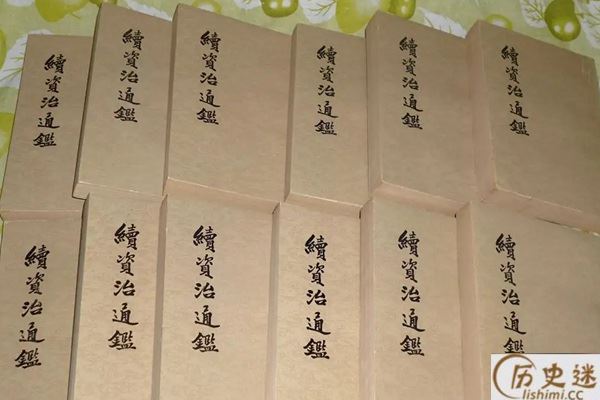 續資治通鑑
續資治通鑑
續資治通鑑
續資治通鑑
續資治通鑑
續資治通鑑
續資治通鑑
續資治通鑑
續資治通鑑
續資治通鑑
續資治通鑑
續資治通鑑
历史迷
lishimi.cc